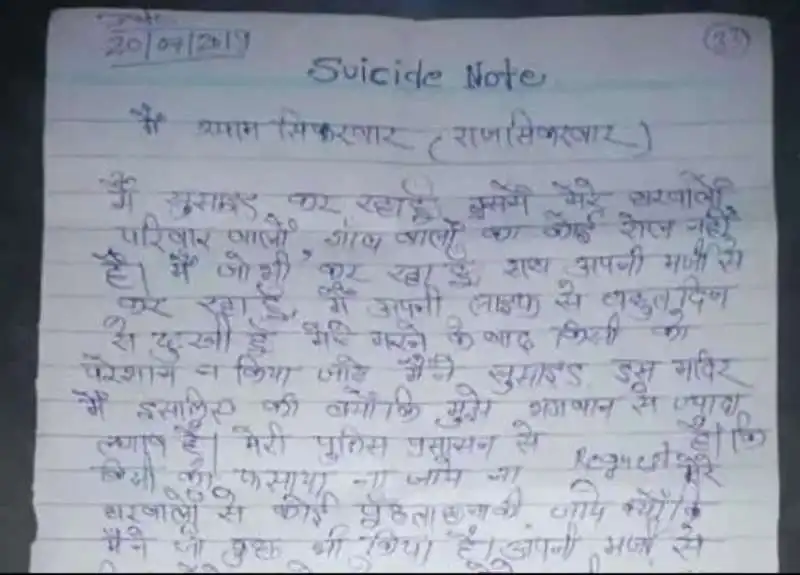 20/04/2019
(33)
Suicide Note
मैं श्याम सिकरवार (राज सिकरवार)
मैं सुसाइड कर रहा हूँ इसमें मेरे घरवालों
परिवार वालों गांव वालों का कोई रोल नहीं
है। मैं जो भी कर रहा हूँ अपनी मर्जी से
कर रहा हूँ, मैं अपनी लाइफ से बहुत दिन
से दुःखी हूँ मेरे मरने के बाद किसी को
परेशान न किया जाये मैंने सुसाइड इस मंदिर
में इसलिए की क्योंकि मुझे भगवान से ज्यादा
लगाव है। मेरी पुलिस प्रसासन से Request है। कि
किसी को फसाया ना जाये ना मेरे
घरवालों से कोई पूछताछ की जाये क्योंकि
मैंने जो कुछ भी किया है। अपनी मर्जी से